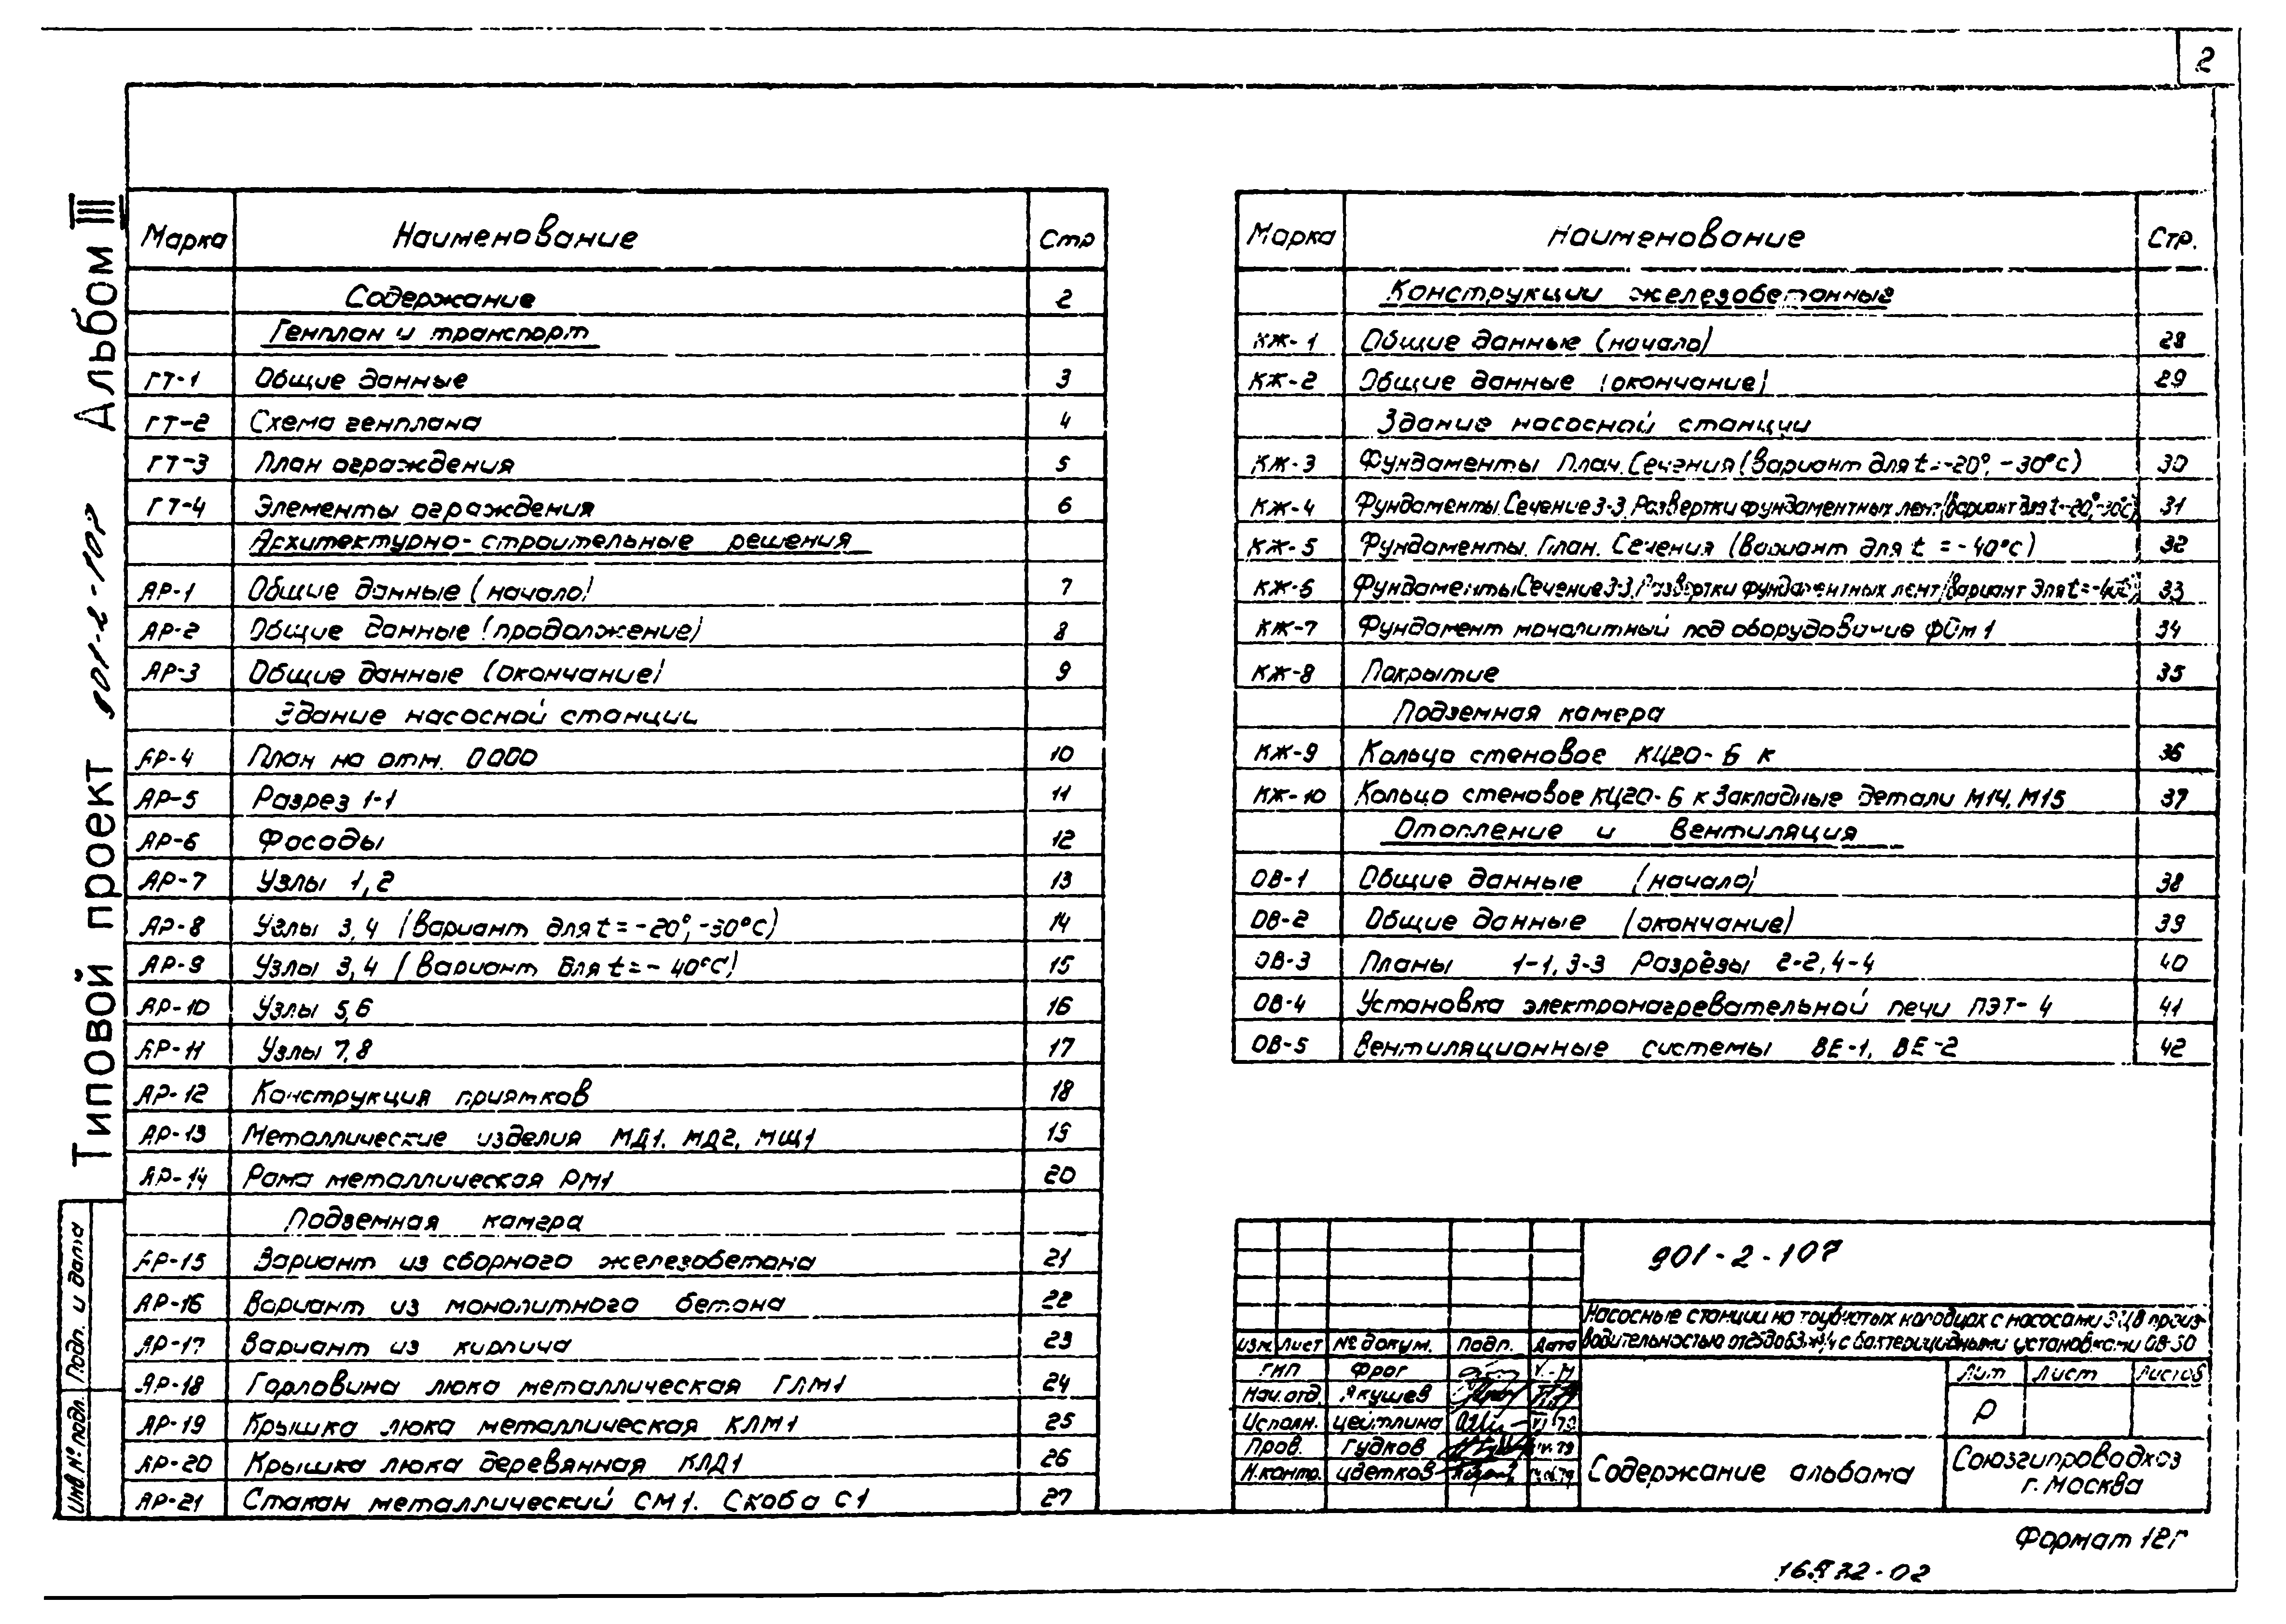 2
Типовой проект 901-2-107 Альбом III
Марка Наименование Стр
Содержание 2
Генплан и транспорт
ГТ-1 Общие данные 3
ГТ-2 Схема генплана 4
ГТ-3 План ограждения 5
ГТ-4 Элементы ограждения 6
Архитектурно-строительные решения
АР-1 Общие данные (начало) 7
АР-2 Общие данные (продолжение) 8
АР-3 Общие данные (окончание) 9
Здание насосной станции
АР-4 План на отм. 0000 10
АР-5 Разрез 1-1 11
АР-6 Фасады 12
АР-7 Узлы 1,2 13
АР-8 Узлы 3,4 (Вариант для t=-20°,-30°С) 14
АР-9 Узлы 3,4 (Вариант для t=-40°С) 15
АР-10 Узлы 5,6 16
АР-11 Узлы 7,8 17
АР-12 Конструкция приямков 18
АР-13 Металлические изделия МД1, МД2, МЩ1 19
АР-14 Рама металлическая РМ1 20
Подземная камера
АР-15 Вариант из сборного железобетона 21
АР-16 Вариант из монолитного бетона 22
АР-17 Вариант из кирпича 23
АР-18 Горловина люка металлическая ГЛМ1 24
АР-19 Крышка люка металлическая КЛМ1 25
АР-20 Крышка люка деревянная КЛД1 26
АР-21 Стакан металлический СМ1. Скоба С1 27
Марка Наименование Стр.
Конструкции железобетонные
КЖ-1 Общие данные (начало) 28
КЖ-2 Общие данные (окончание) 29
Здание насосной станции
КЖ-3 Фундаменты План. Сечения (Вариант для t=-20°,-30°С) 30
КЖ-4 Фундаменты. Сечение 3-3. Развертки фундаментных лент (Вариант для t=-20°,-30°С) 31
КЖ-5 Фундаменты. План. Сечения (Вариант для t=-40°С) 32
КЖ-6 Фундаменты Сечение 3-3. Развертки фундаментных лент (Вариант для t=-40°С) 33
КЖ-7 Фундамент монолитный под оборудование ФОм1 34
КЖ-8 Покрытие 35
Подземная камера
КЖ-9 Кольцо стеновое КЦ20-6 к 36
КЖ-10 Кольцо стеновое КЦ20-6 к Закладные детали М14, М15 37
Отопление и Вентиляция
ОВ-1 Общие данные (начало) 38
ОВ-2 Общие данные (окончание) 39
ОВ-3 Планы 1-1, 3-3 Разрезы 2-2, 4-4 40
ОВ-4 Установка электронагревательной печи ПЭТ-4 41
ОВ-5 Вентиляционные системы ВЕ-1, ВЕ-2 42
901-2-107
Насосные станции на трубчатых колодцах с насосами ЭЦВ произ-
водительностью от 25 до 63 м³/ч с бактерицидными установками ОВ-50
Изм. Лист № докум. Подп. Дата
ГИП Фрог
Нач.отд. Якушев
Исполн. Цейтлина
Пров. Гудков
Н.контр. Цветков
Лит Лист Листов
Р
Содержание альбома
Союзгипроводхоз
г. Москва
Инв.№ подл. Подп. и дата
Формат 12г